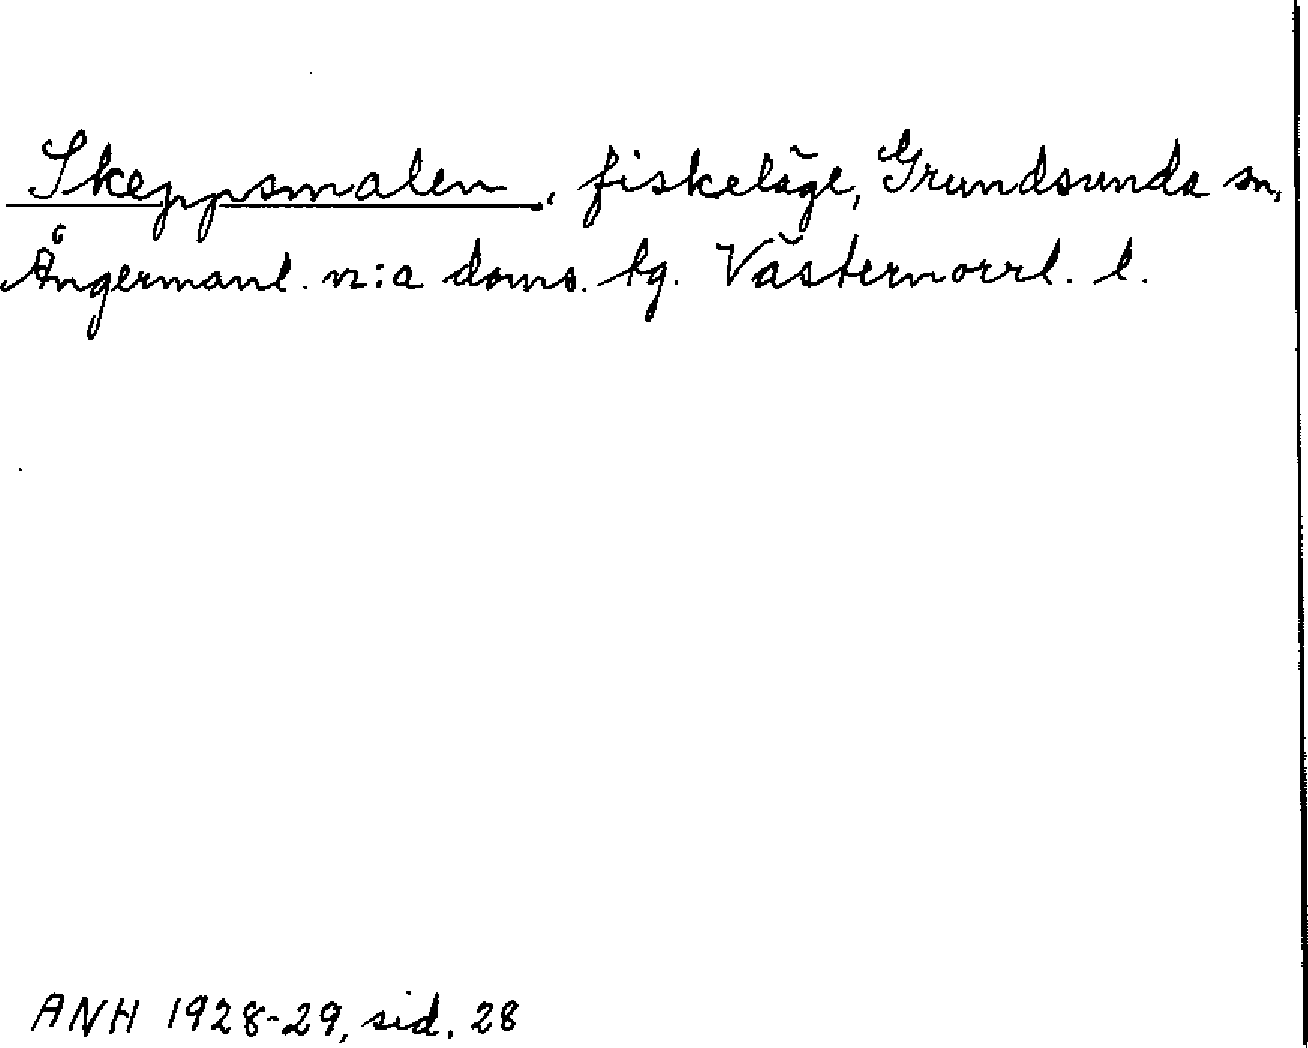 Skeppsmalen, fiskeläge, Grundsunda sn,
Ångermanl. n:a doms. tg. Västernorrl. l.
ANH 1928-29, sid. 28